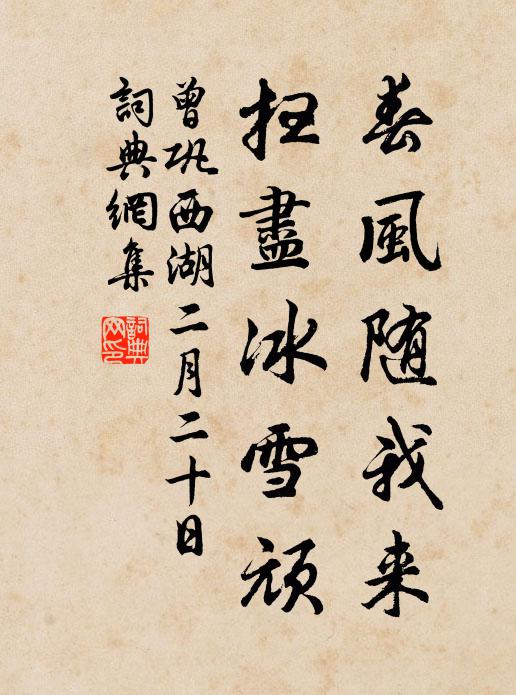 春風随我来
扫盡冰雪頑
曾巩西湖二月二十日
詞典網集
詞典網印